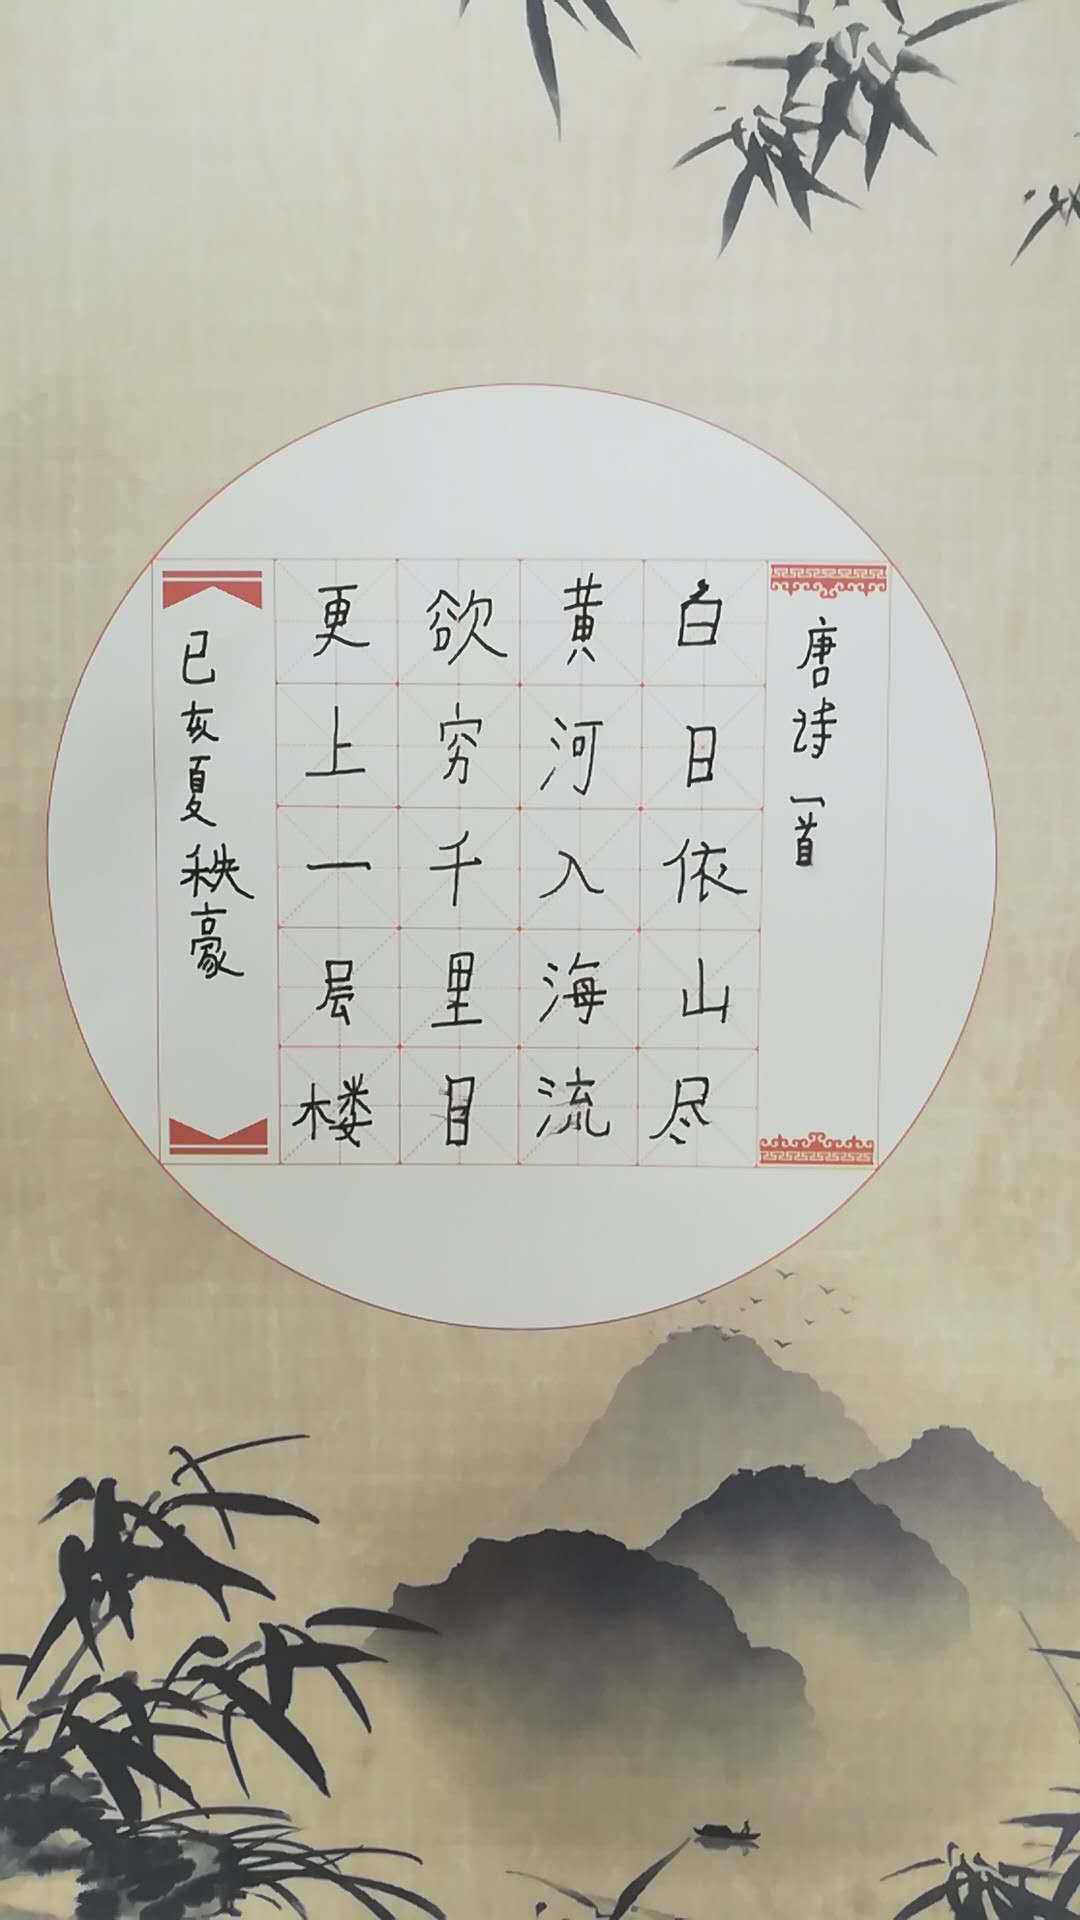 唐诗一首
白日依山尽
黄河入海流
欲穷千里目
更上一层楼
已亥夏秩豪